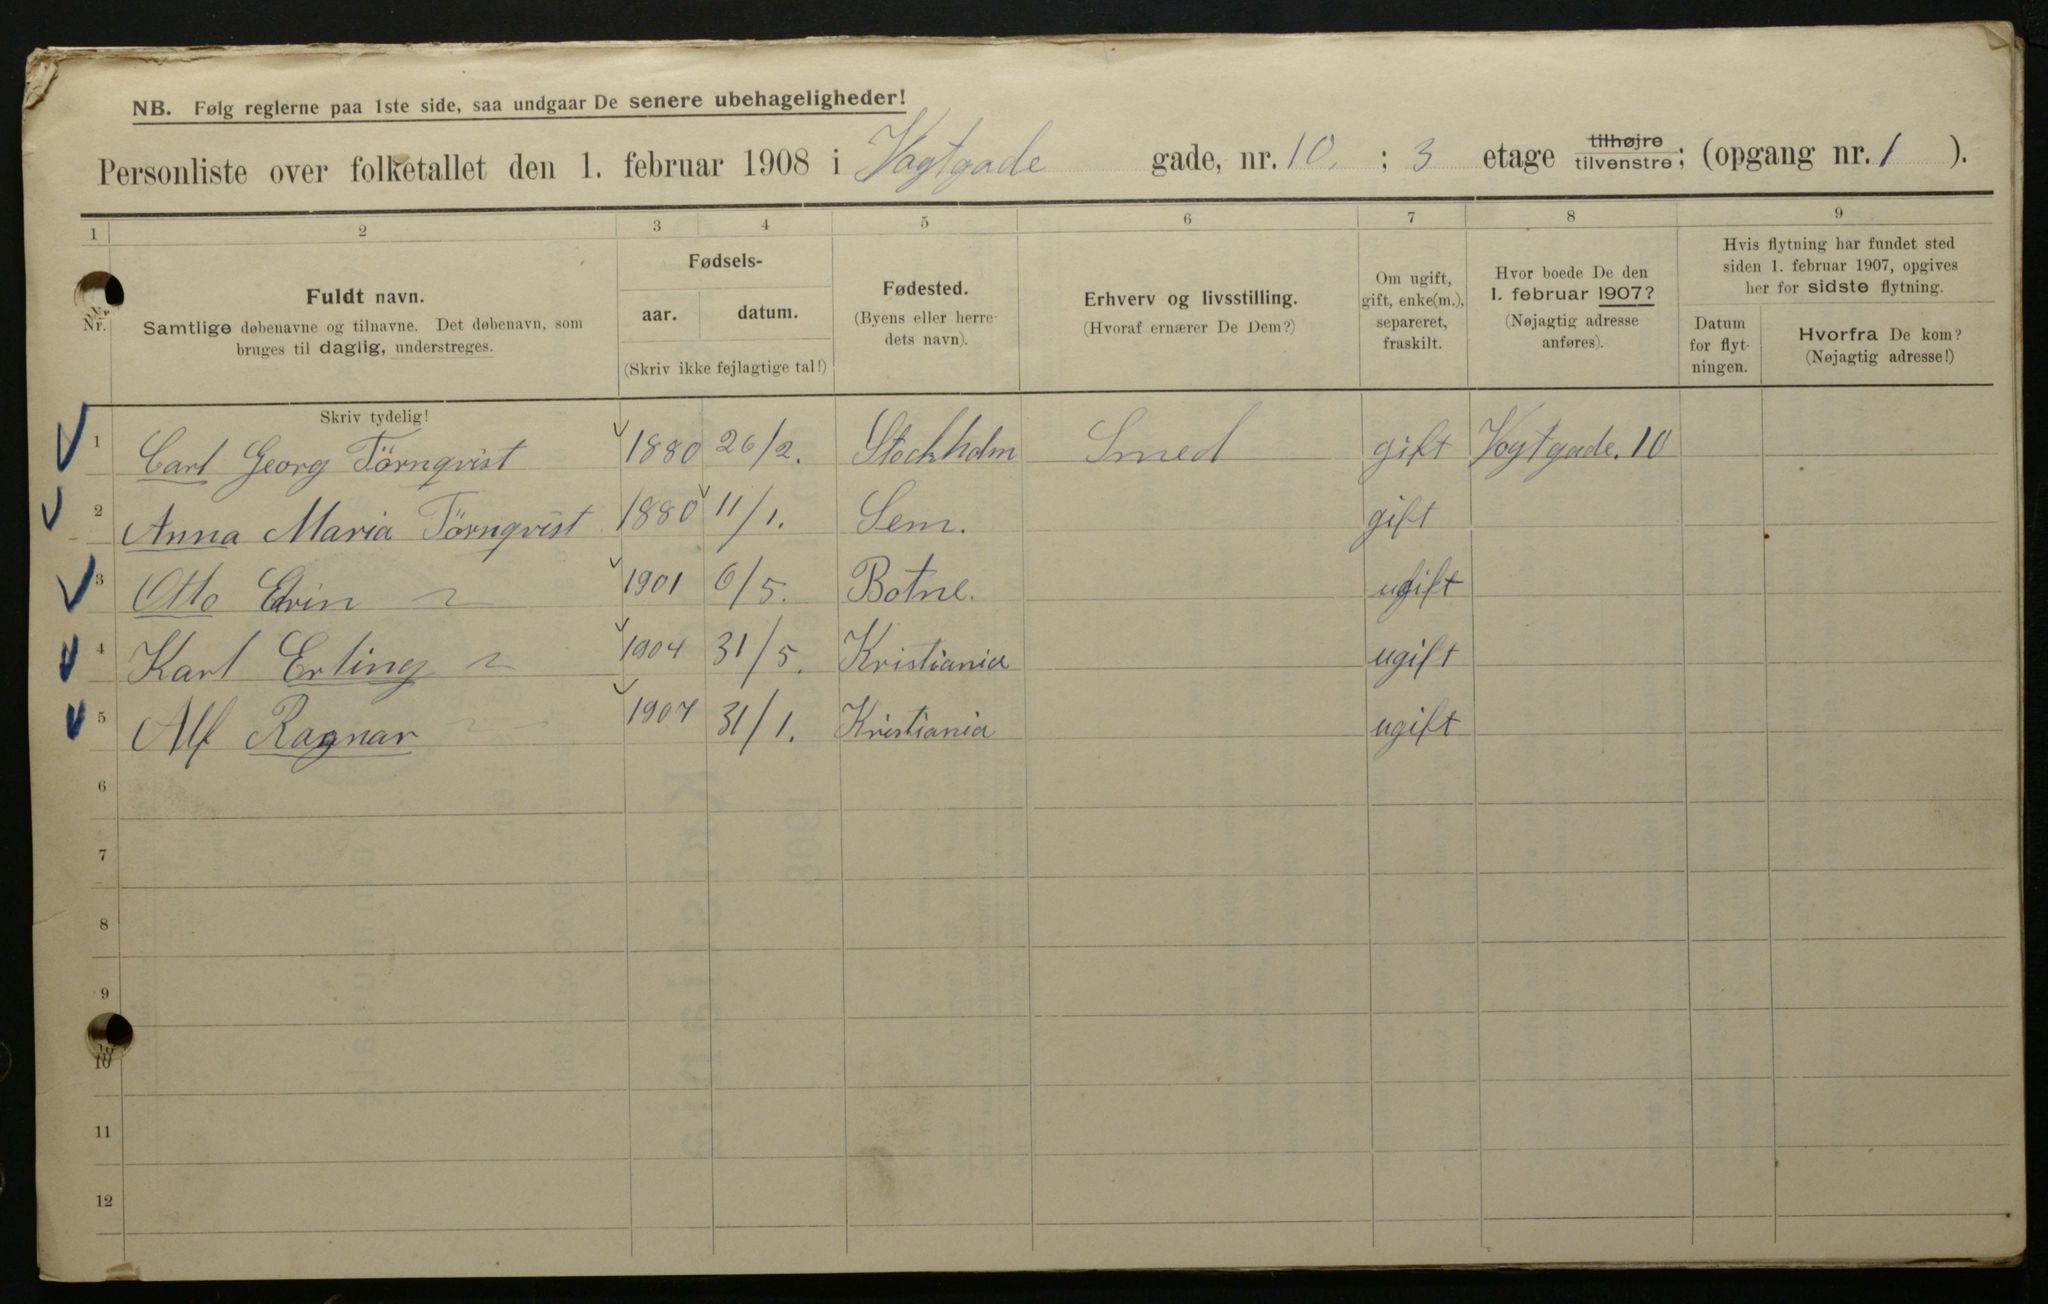 NB. Følg reglerne paa 1ste side, saa undgaar De senere ubehageligheder!
Personliste over folketallet den 1. februar 1908 i Vogtgade gade, nr. 10. ; 3 etage tilhøjre tilvenstre; (opgang nr. 1 ).
1 2 3 4 5 6 7 8 9
Nr.
Fuldt navn.
Samtlige døbenavne og tilnavne. Det døbenavn, som
bruges til daglig, understreges.
Fødsels-
aar. datum.
(Skriv ikke fejlagtige tal!)
Fødested.
(Byens eller herre-
dets navn).
Erhverv og livsstilling.
(Hvoraf ernærer De Dem?)
Om ugift,
gift, enke(m.),
separeret,
fraskilt.
Hvor boede De den
1. februar 1907?
(Nøjagtig adresse
anføres).
Hvis flytning har fundet sted
siden 1. februar 1907, opgives
her for sidste flytning.
Datum
for flyt-
ningen.
Hvorfra De kom?
(Nøjagtig adresse!)
Skriv tydelig!
1 Carl Georg Törnqvist 1880 26/2. Stockholm Smed gift Vogtgade. 10
2 Anna Maria Törnqvist 1880 11/1. Sem. gift
3 Otto 1901 6/5. Botne. ugift
4 Karl Erling " 1904 31/5. Kristiania ugift
5 Alf Ragnar " 1907 31/1. Kristiania ugift
6
7
8
9
10
11
12